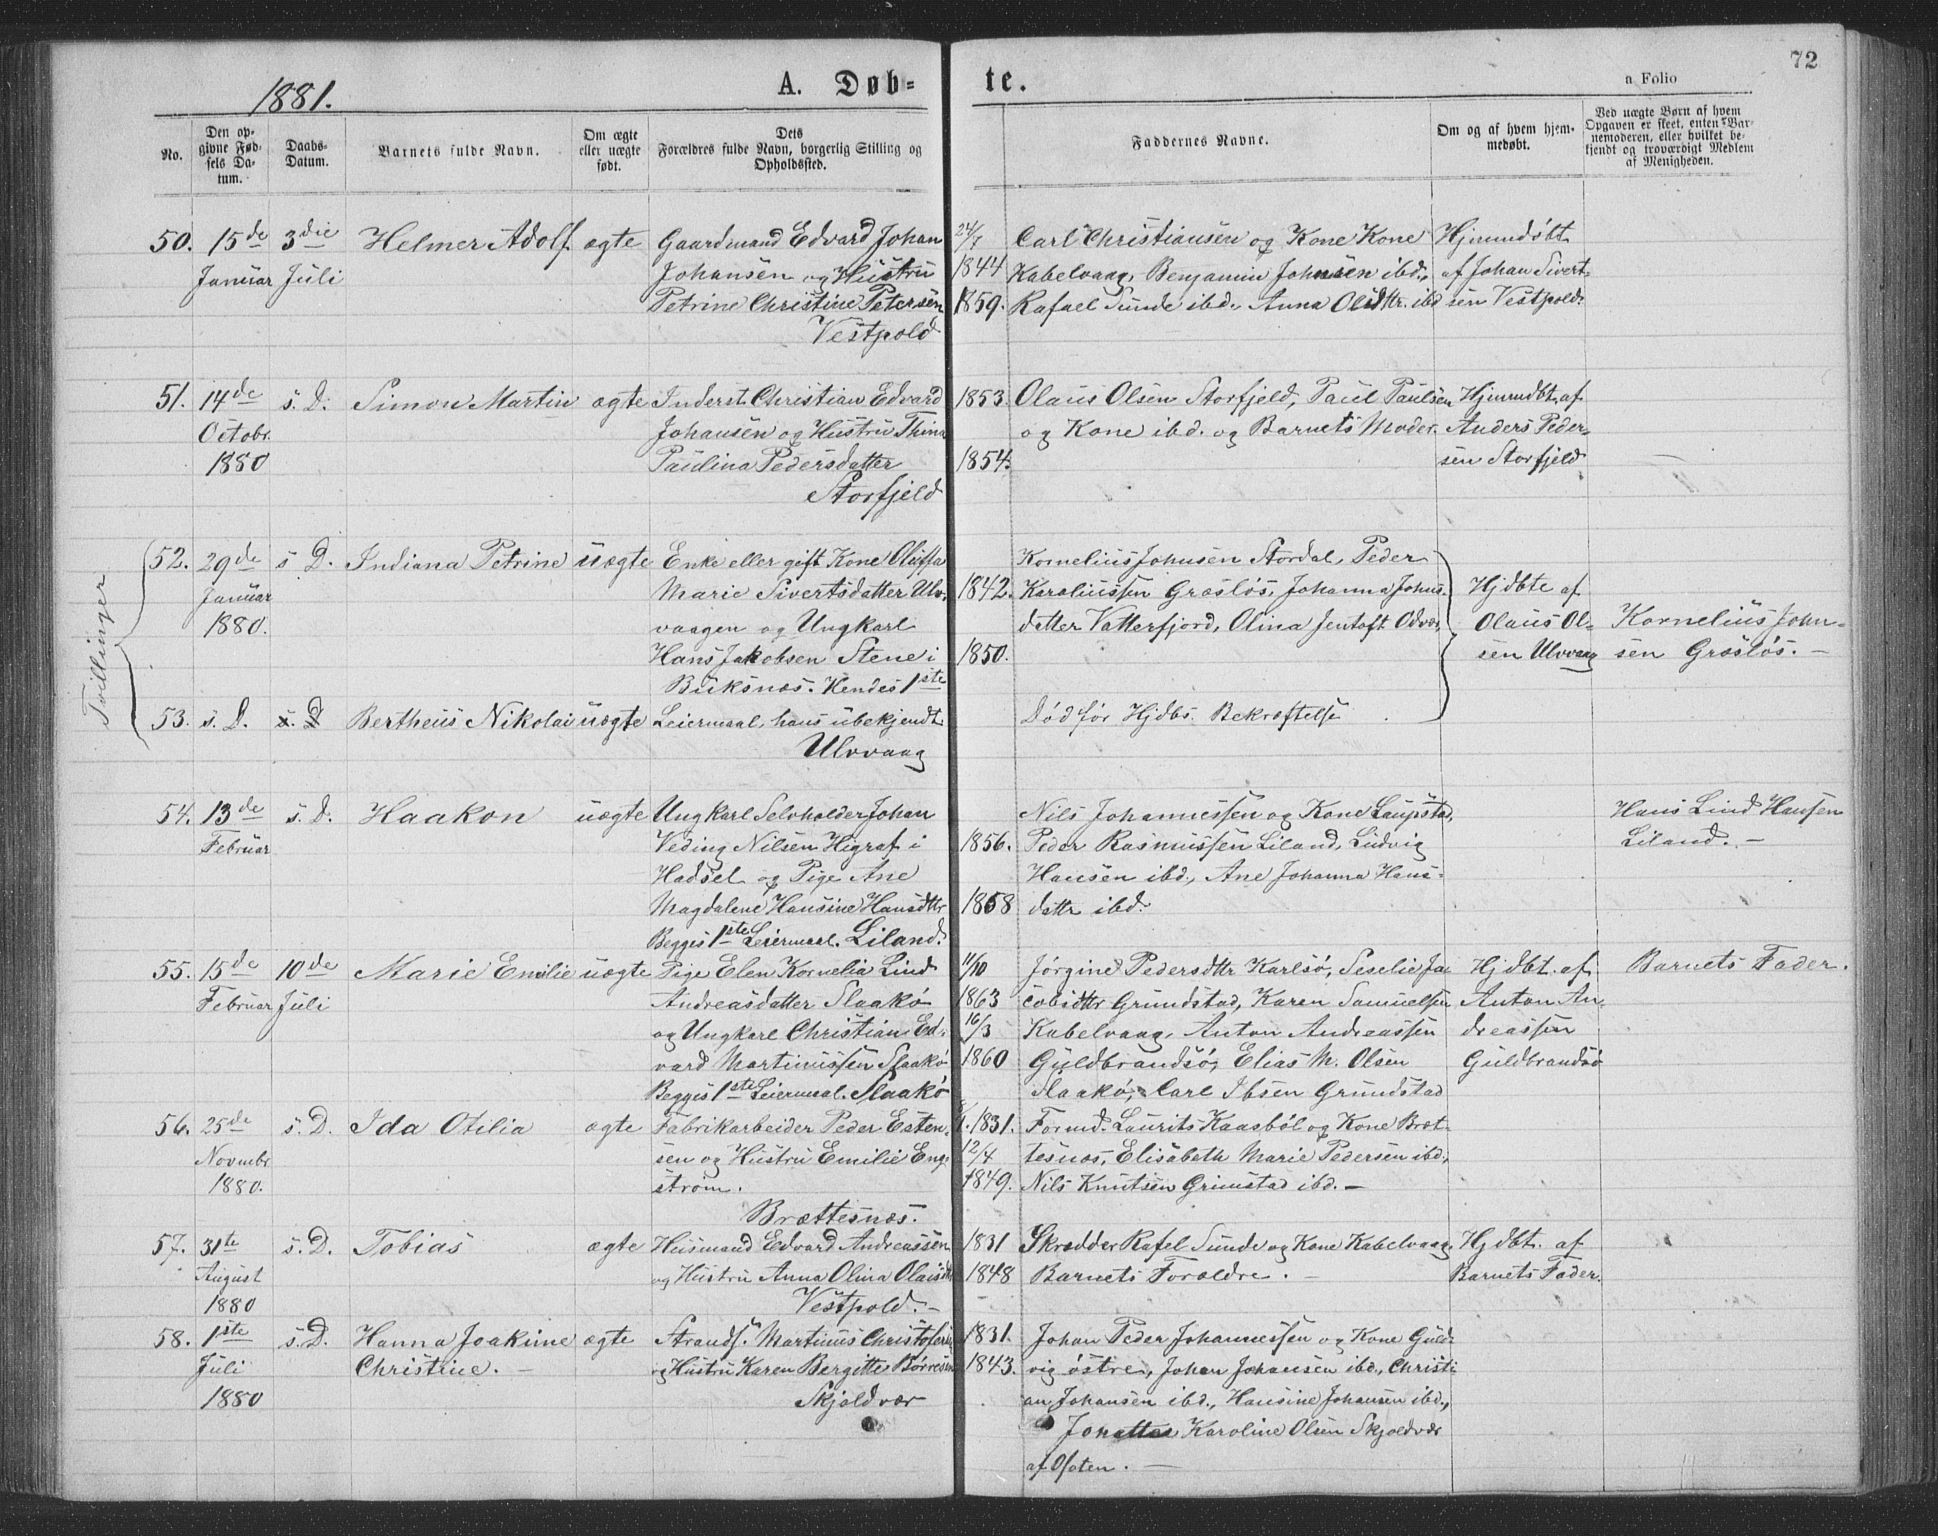 72
1881.
A. Døb=
te.
a Folio
No.
Den op=
givne Fød=
sels Da=
tum.
Daabs=
Datum.
Barnets fulde Navn.
Om ægte
eller uægte
født.
Dets
Forældres fulde Navn, borgerlig Stilling og
Opholdssted.
Faddernes Navne.
Om og af hvem hjem=
medøbt.
Ved uægte Børn af hvem
Opgaven er skeet, enten Bar=
nemoderen, eller hvilket be=
kjendt og troværdigt Medlem
af Menigheden.
50. 15de 3die Helmer Adolf. ægte Gaardmand Edvard Johan
Januar Juli Johansen og Hustru
Petrine Christine Petersen
Vestpold
24/7 Carl Christiansen og Kone Kone Hjemmdøbt
1844 Kabelvaag, Benjamin Johnsen ibd., af Johan Sivert-
1859. Rafael Sunde ibd., Anna Olsdttr. ibd sen Vestpold.
51. 14de s. D. Simon Martin ægte Inderst Christian Edvard
Octobr. Johansen og Hustru Thina
1880 Paulina Pedersdatter
Storfjeld
1853. Olaus Olsen Storfjeld, Paul Paulsen Hjemmdbt. af
og Kone ibd. og Barnets Moder. Anders Peder-
1854. sen Storfjeld
Tvillinger
52. 29de s D. Indiana Petrine uægte Enke eller gift Kone Oluffa
Januar Marie Sivertsdatter Ulv-
1880. vaagen og Ungkarl
Hans Jakobsen Stene i
Buksnæs. Hendes 1ste
53. s. D. s. D Bertheus Nikolai uægte Leiermaal, hans ubekjendt
Ulvvaag
Kornelius Johnsen Stordal, Peder
1842. Karoliussen Græsløs, Johanna Johns- Hjdbte af
datter Vatterfjord, Olina Jentoft Odvær, Olaus Ol- Kornelius John-
1850. sen Ulvvaag sen Græsløs. —
Død før Hjdbs. Bekræftelse
54. 13de s. D. Haakon uægte Ungkarl Selvholder Johan
Februar Veding Nilsen Higraf i
Hadsel og Pige Ane
Magdalene Hansine Hansdttr
Begges 1ste Leiermaal. Liland.
Nils Johannessen og Kone Laupstad, Hans Lind Hansen
1856. Peder Rasmussen Liland, Ludvig Liland. —
Hansen ibd., Ane Johanna Hans-
1858 dattr ibd.
55. 15de 10de Marie Emilie uægte Pige Elen Kornelia Lind
Februar Juli Andreasdatter Slaakø
og Ungkarl Christian Ed-
vard Martinussen Slaakø
Begges 1ste Leiermaal. Slaakø
11/10 Jørgine Pedersdttr Karlsø, Seselie Ja- Hjdbt. af Barnets Fader.
1863 cobsdttr Grundstad, Karen Samuelsen Anton An-
16/3 Kabelvaag, Anton Andreassen dreassen
1860 Guldbrandsø, Elias M. Olsen Guldbrandsø
Slaakø, Carl Ibsen Grundstad
56. 25de s. D. Ida Otilia ægte Fabrikarbeider Peder Esten-
Novmbr sen og Hustru Emilie Eng-
1880. strøm.
Brættesnæs.
1831. Formd. Laurits Kaasbøl og Kone Bræt-
12/4 tesnæs, Elisabeth Marie Pedersen ibd.,
1849. Nils Knutsen Grimstad ibd. —
57. 31te s. D. Tobias ægte Husmand Edvard Andreassen
August og Hustru Anna Olina Olausdtr
1880 Vestpold. —
1831 Skrædder Rafel Sunde og Kone Kabelvaag, Hjdbt. af
1848 Barnets Forældre. — Barnets Fader.
58. 1ste s. D. Hanna Joakime ægte Strands. Martinus Christofersen
Juli Christine. — og Hustru Karen Bergitte Børresen
1880 Skjoldvær
1831. Johan Peder Johannessen og Kone Guld-
1843. vig østre, Johan Johansen ibd., Christi-
an Johansen ibd., Hansine Johansen ibd.,
Jonattas Karoline Olsen Skjoldvær
af Ofoten. —